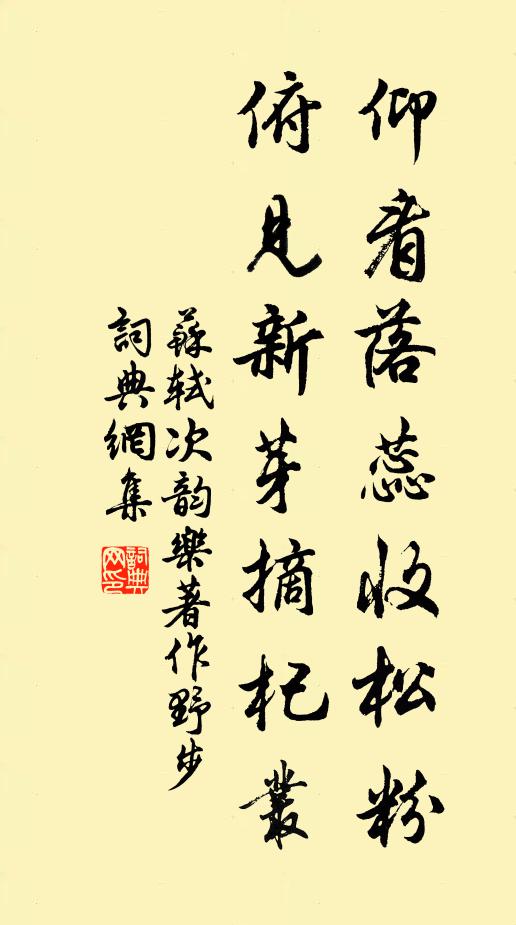 仰看落蕊收松粉
俯見新芽摘杞叢
蘇軾次韵樂著作野步
詞典網集
詞典網印